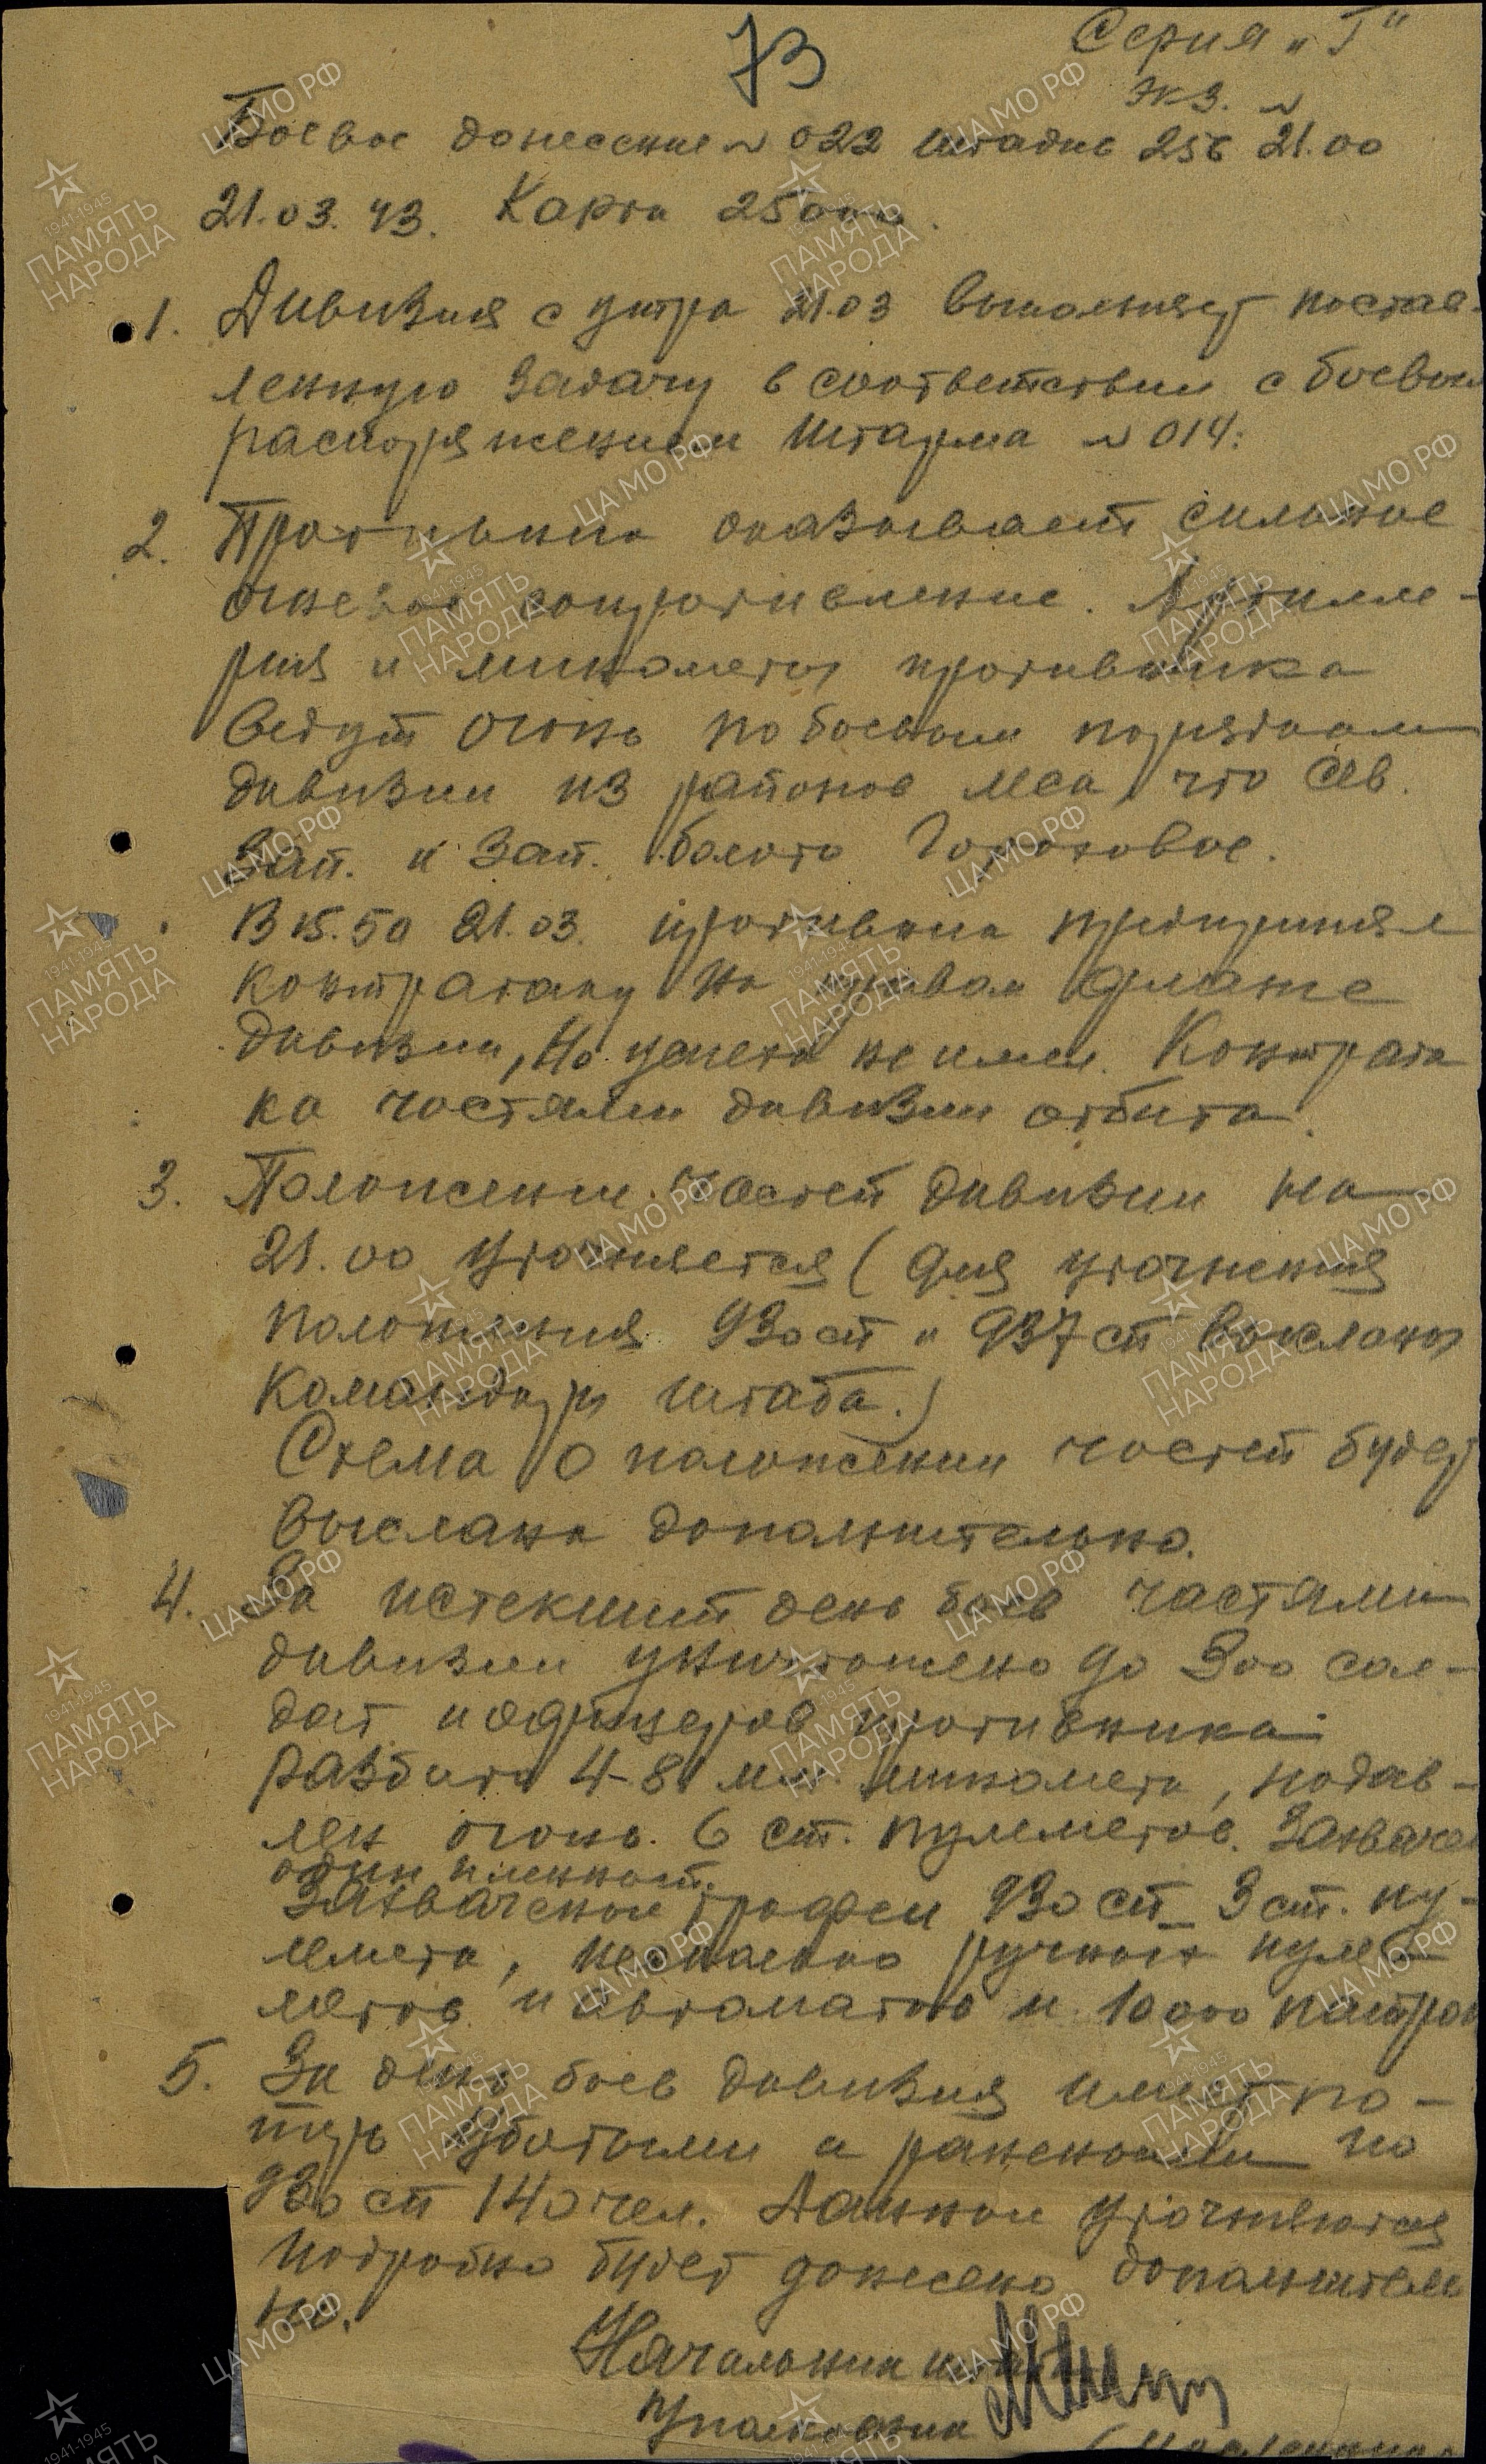 73
Серия „Г"
Экз. №
Боевое донесение № 022 штадив 256 21.00
21.03.43. Карта 25000.
1. Дивизия с утра 21.03 выполняет постав-
ленную задачу в соответствии с боевым
распоряжением Штарма № 014.
2. Противник оказывает сильное
огневое сопротивление. Артилле-
рия и минометы противника
ведут огонь по боевым порядкам
дивизии из районов леса, что сев.
зап. и зап. болото
В 15.50 21.03. противник предпринял
контратаку на правом фланге
дивизии, но успеха не имел. Контрата
ка частями дивизии отбита.
3. Положение частей дивизии на
21.00 уточняется (для уточнения
положения 930 сп и 937 сп высланы
командиры штаба.)
Схема о положении частей будет
выслана дополнительно.
4. За истекший день боев частями
дивизии уничтожено до 300 сол-
дат и офицеров противника
разбито 4-81 мм. миномета, подав-
лен огонь 6 ст. пулеметов. Захвачен
один пленный.
Захвачены трофеи 930 сп - 3 ст. пу-
лемета, несколько ручных пуле-
метов и автоматов и 10000 патрон
5. За день боев дивизия имеет по-
терь убитыми и ранеными по
930 сп 140 чел. Данные уточняются
Подробно будет донесено дополнитель
но.
Начальник штаба
полковник
ЦАМО РФ
1941-1945
ПАМЯТЬ
НАРОДА